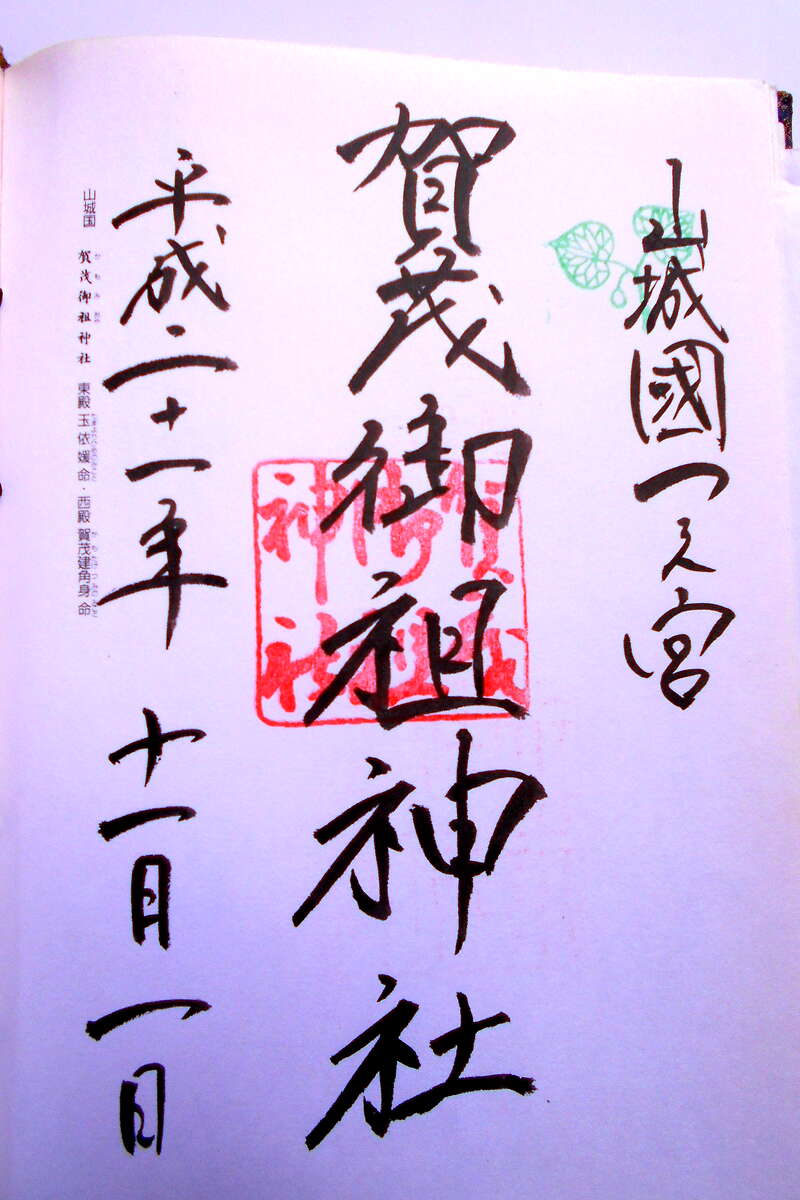 山城國一之宮
賀茂御祖神社
賀茂御祖神社
平成二十一年 十一月一日
山城国 賀茂御祖神社 東殿 玉依媛命・西殿 賀茂建角身命